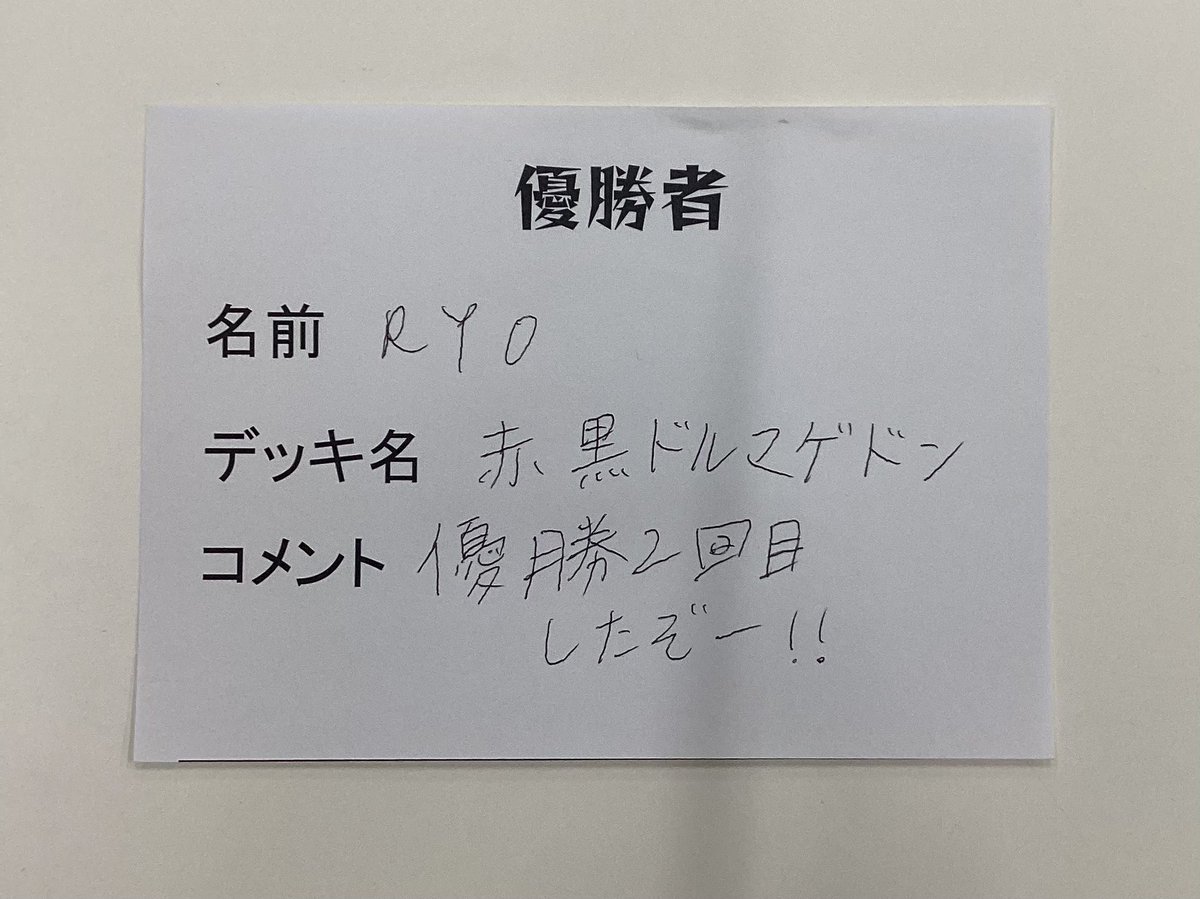 優勝者
名前 RYO
デッキ名 赤黒ドルマゲドン
コメント 優勝2回目
したぞー!!